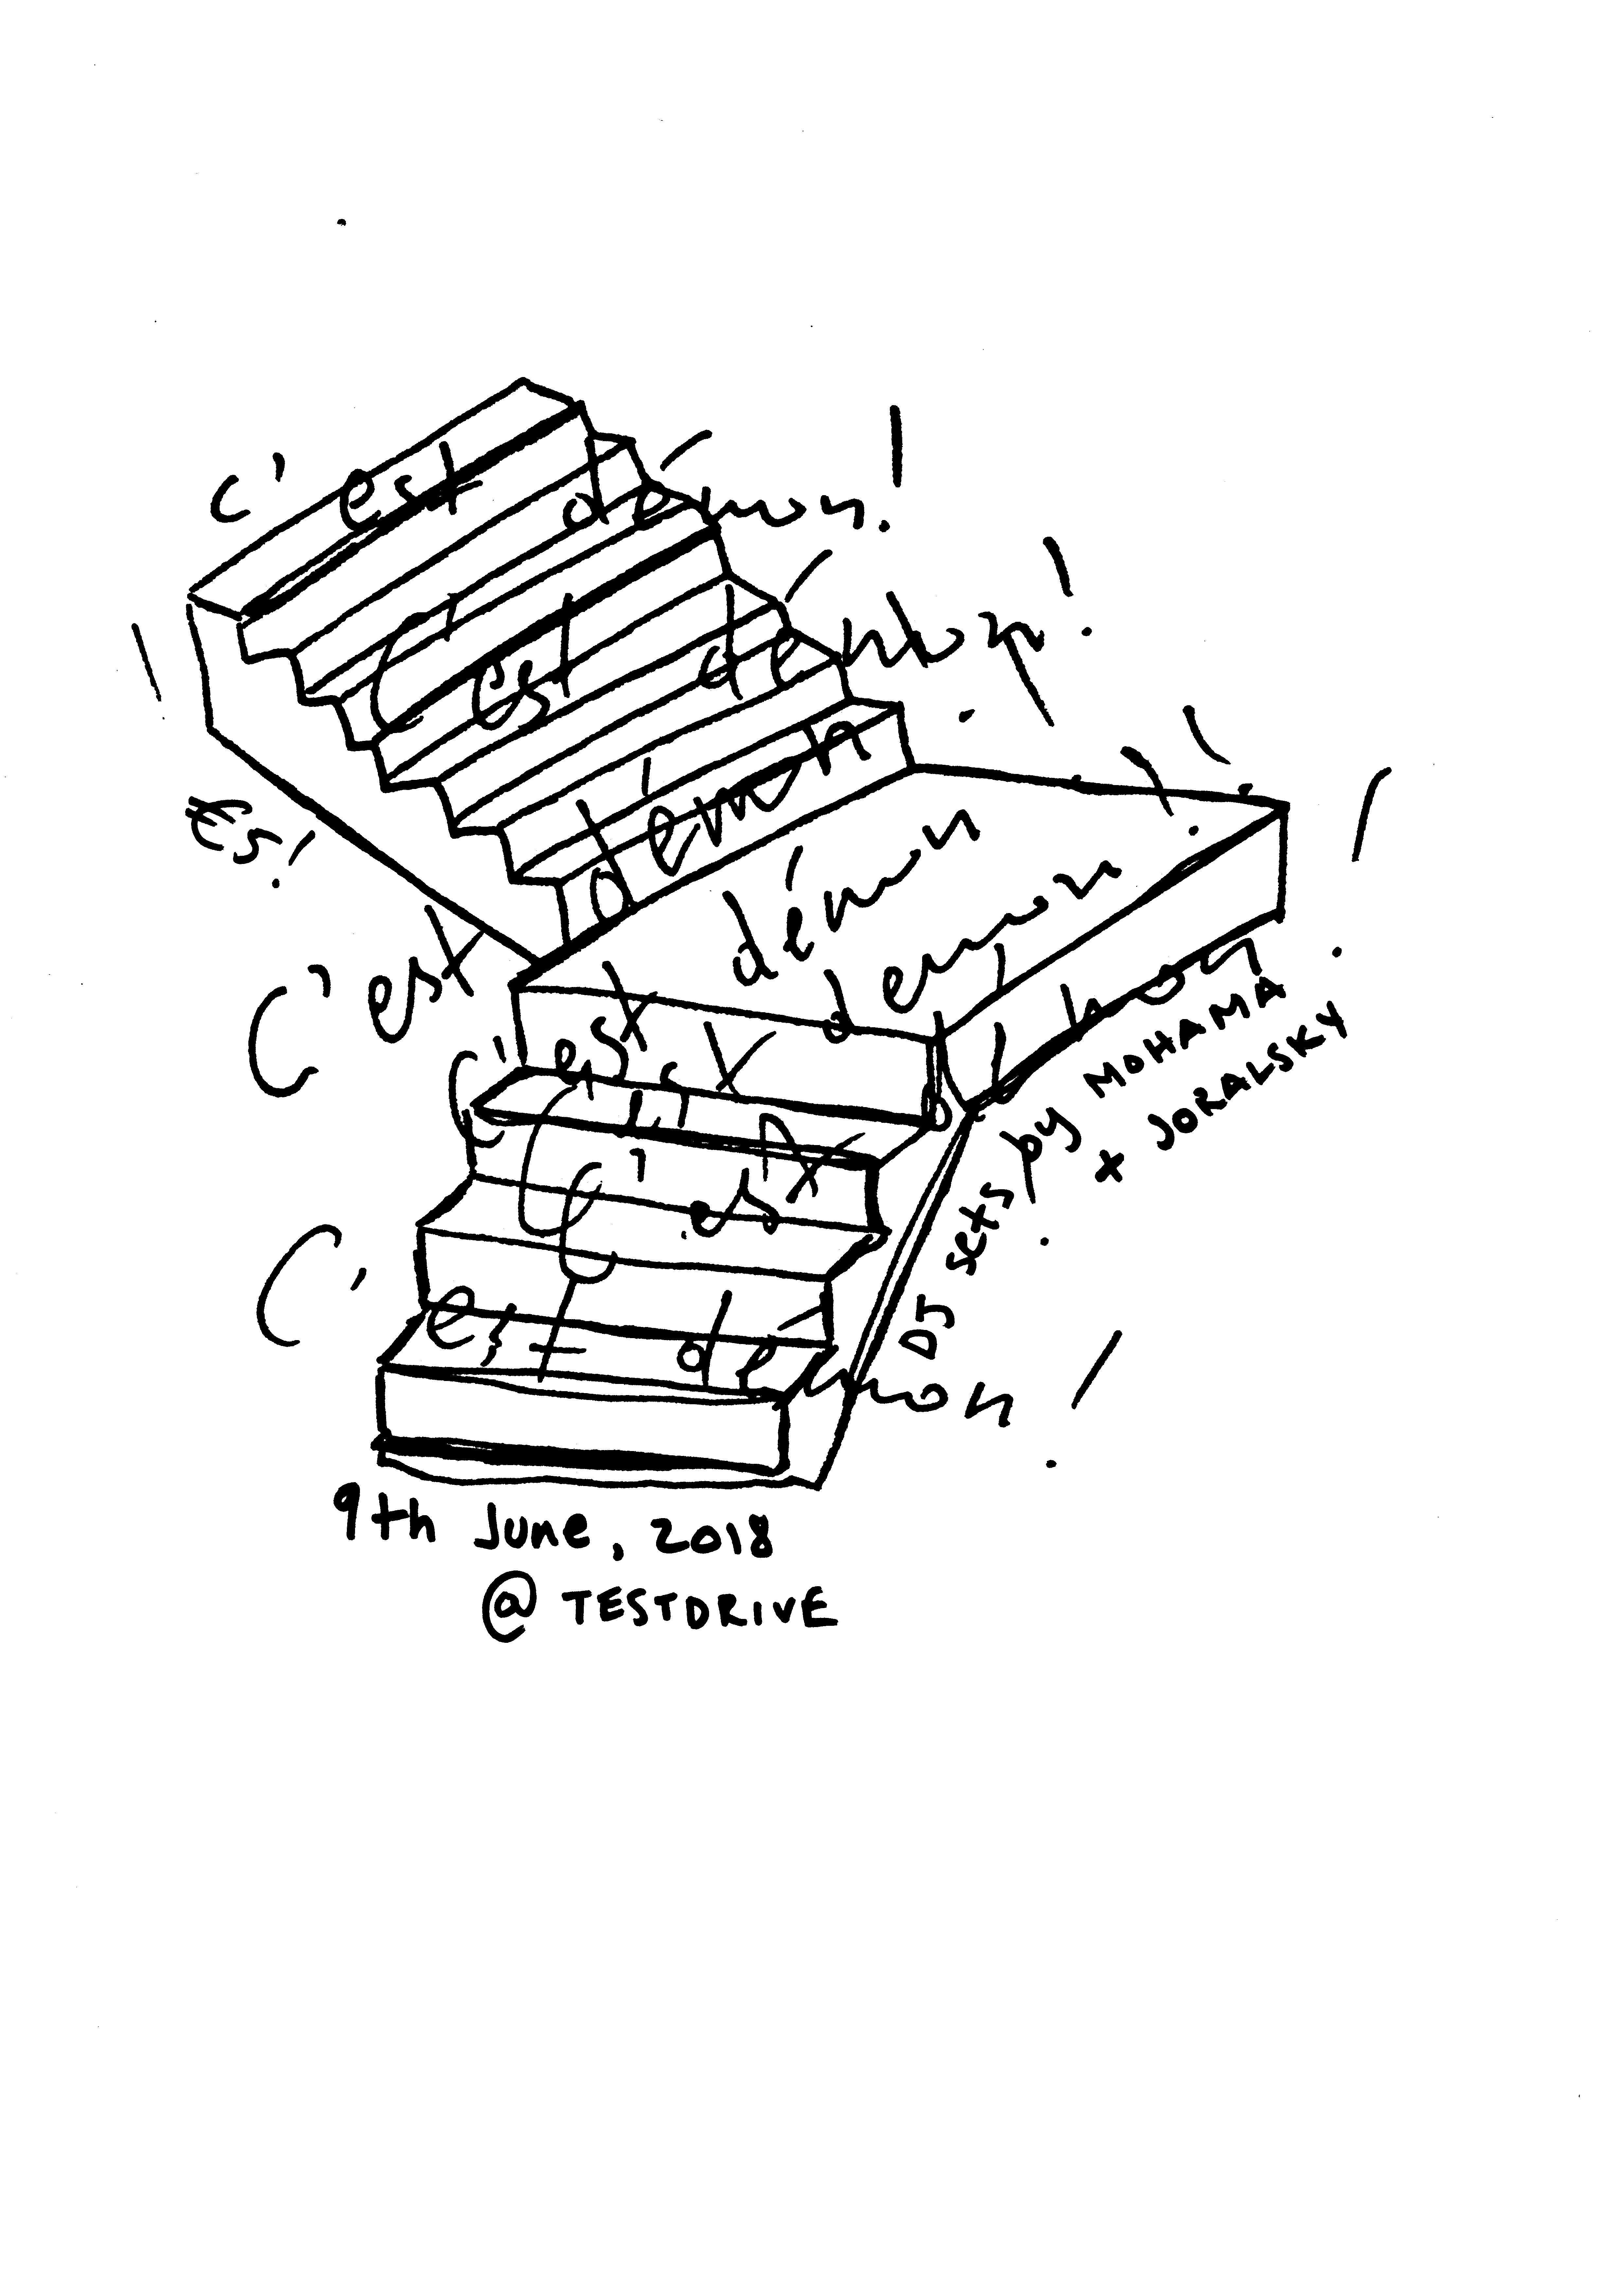 c'est démon!
C'est démon!
démon
€5!
démon
C'est
démon
C'est
démon
C'est
C'est
C'est démon!
DJ sets by MOHAMA
x JORALSKY
9th June, 2018
@ TESTDRIVE